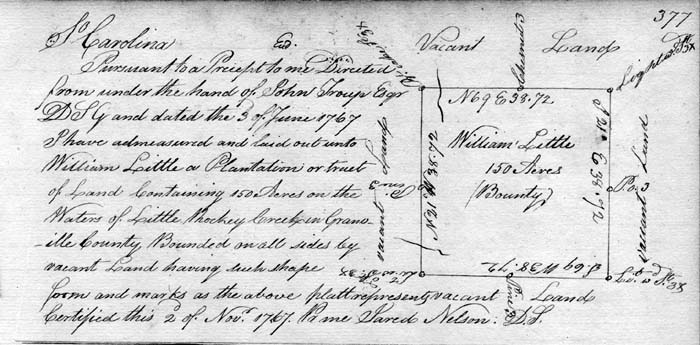 377
So. Carolina
Pursuant to a Precept to me Directed
from under the hand of John Troup Esqr
D S G and dated the 3 of June 1767
I have admeasured and laid out unto
William Little a Plantation or tract
of Land Containing 150 Acres on the
Waters of Little Rockey Creek in Granv
-ille County Bounded on all sides by
vacant Land having such shape
form and marks as the above platt represents
Certified this 2d of Novr. 1767. Pr me Jared Nelson: D.S.
Vacant Land
N 69 E 38.72
William Little
150 Acres
(Bounty)
N 21 W 38.72
S 21 E 38.72
S 69 W 38.72
vacant Land
vacant Land
vacant Land
Pine 3
Po. 3
Pine 3